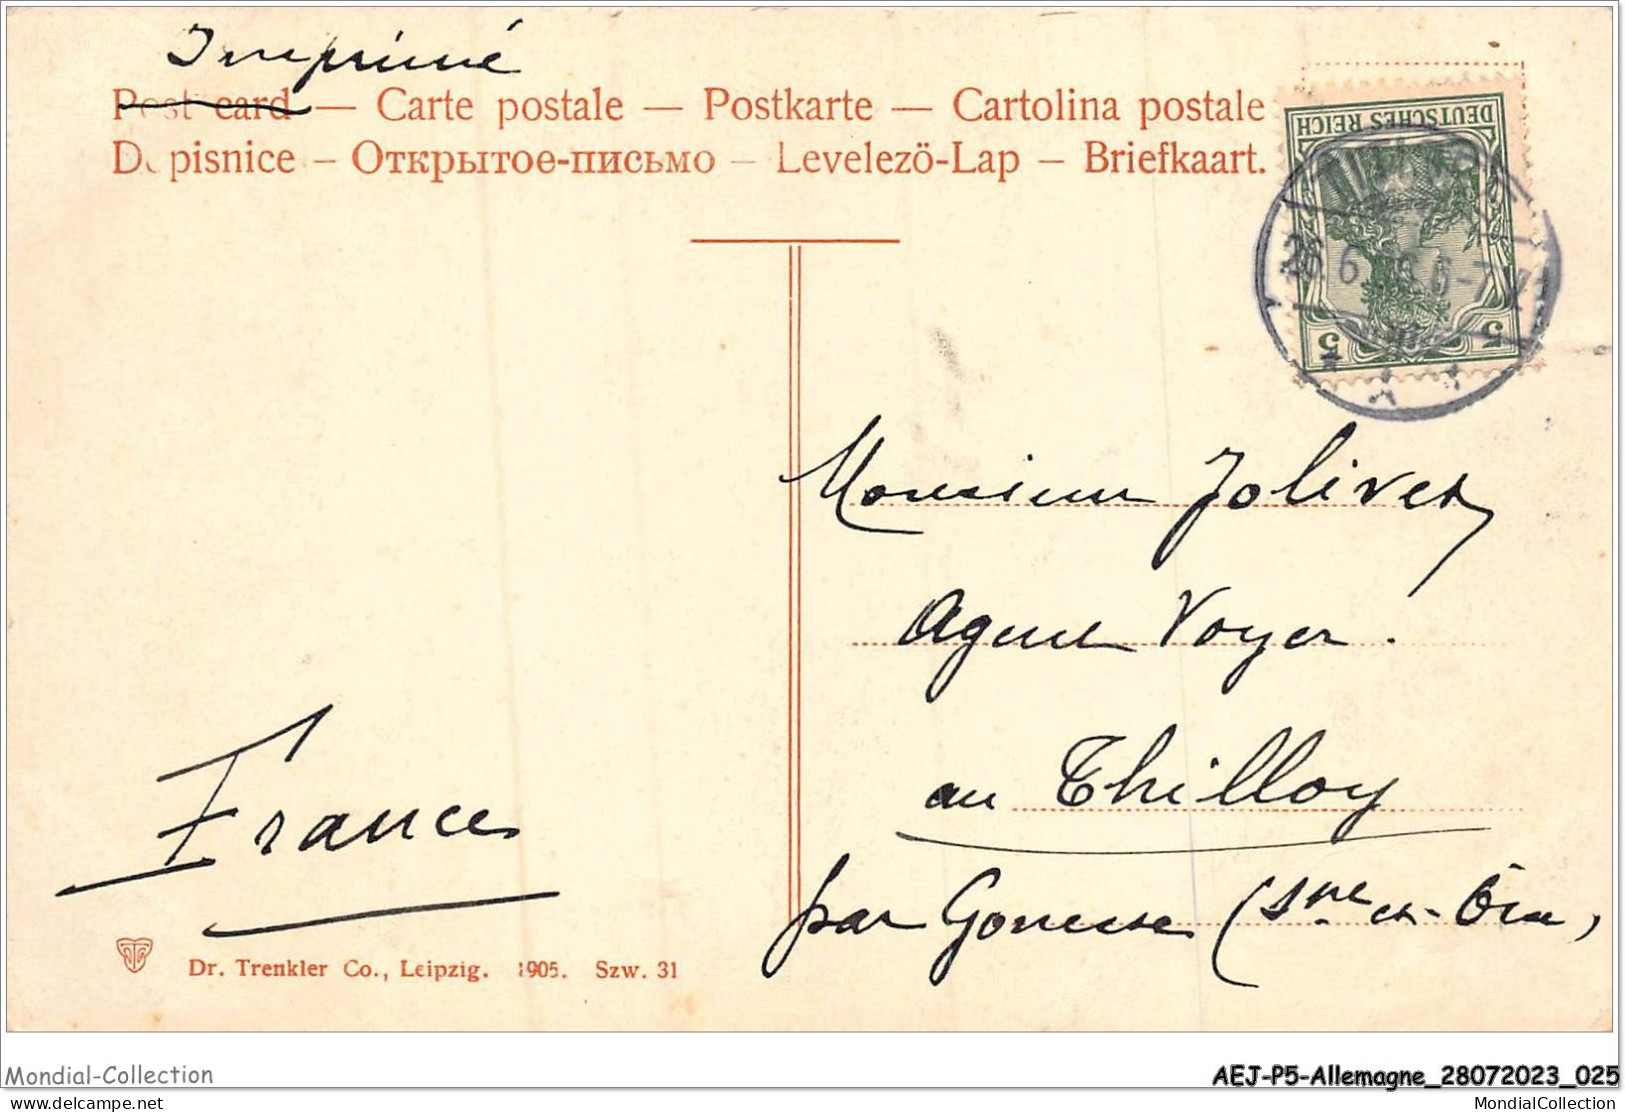 Imprimé
Post card — Carte postale — Postkarte — Cartolina postale
Dopisnice – Открытое-письмо – Levelező-Lap – Briefkaart.
DEUTSCHES REICH
5 5
26 6 6-7
Monsieur Jolivet
Agent Voyer.
au Thilloy
par Gonesse (Sne et Oise)
France
Dr. Trenkler Co., Leipzig. 1905. Szw. 31
Mondial-Collection
AEJ-P5-Allemagne_28072023_025
delcampe.net
MondialCollection